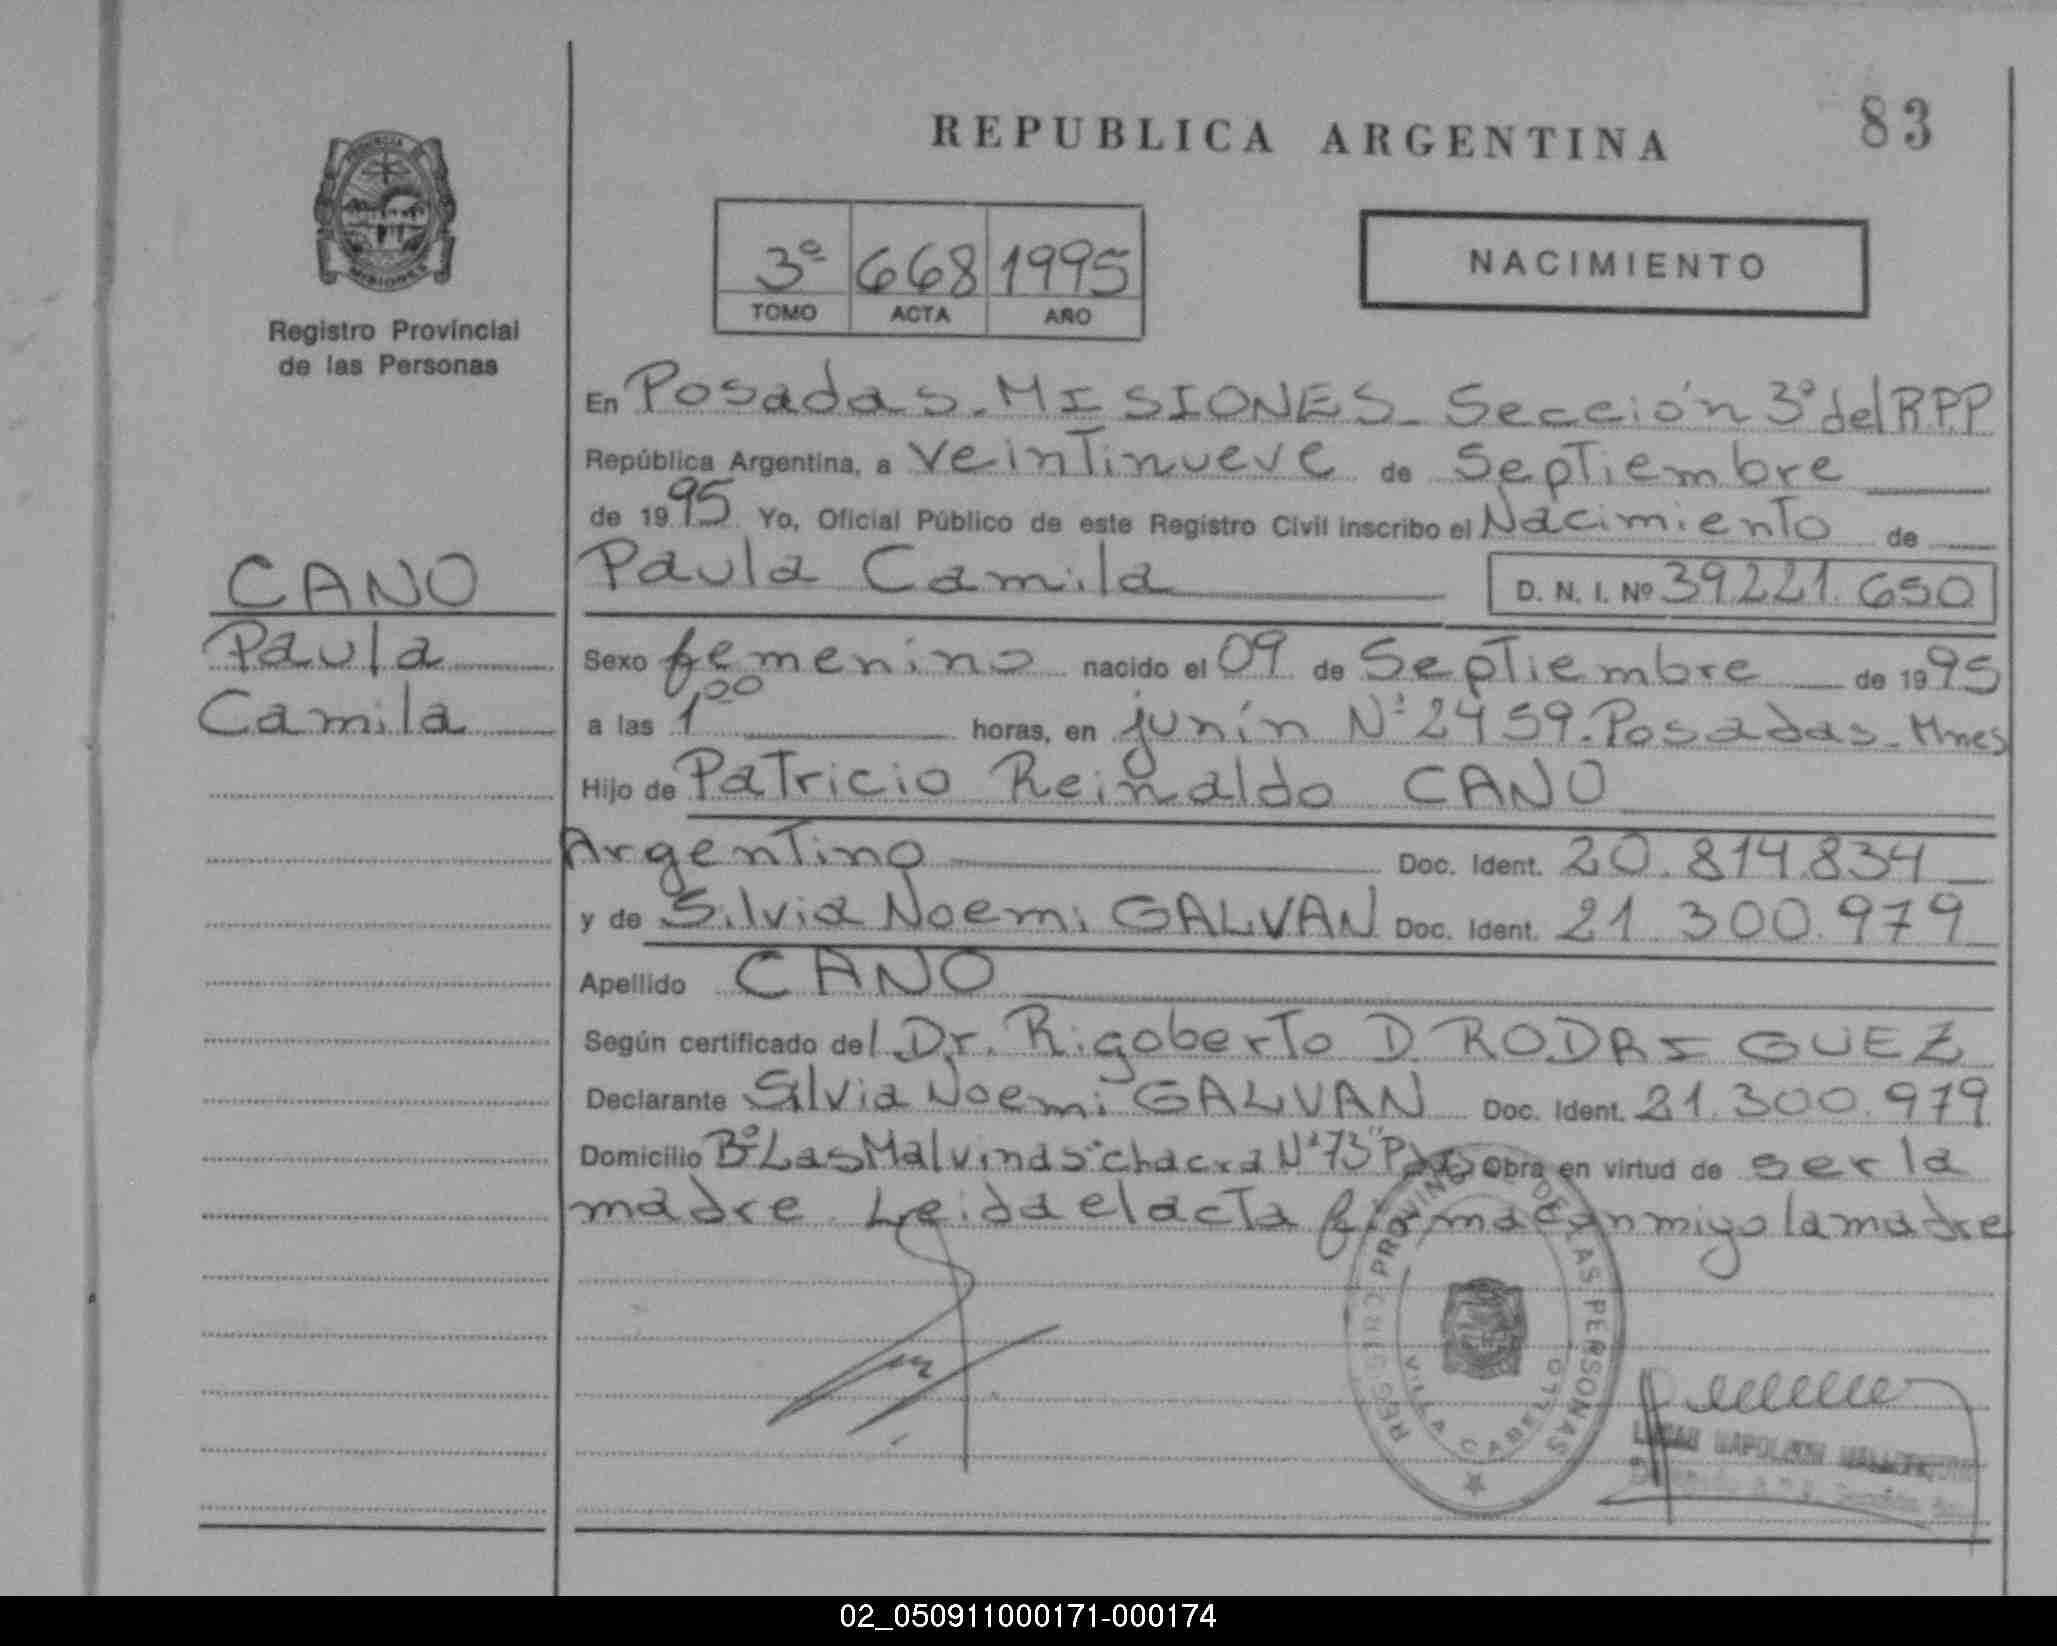 83
REPUBLICA ARGENTINA
PROVINCIA
MISIONES
Registro Provincial
de las Personas
3º 668 1995
TOMO ACTA AÑO
NACIMIENTO
En Posadas-MISIONES-Sección 3º del R.P.P
República Argentina, a veintinueve de Septiembre
de 1995 Yo, Oficial Público de este Registro Civil inscribo el Nacimiento de
CANO
Paula
Camila
Paula Camila D. N. I. Nº 39.221.650
Sexo femenino nacido el 09 de Septiembre de 1995
a las 1,00 horas, en junín Nº 2459-Posadas-Mnes
Hijo de Patricio Reinaldo CANO
Argentino Doc. Ident. 20.814.834
y de Silvia Noemi GALVAN Doc. Ident. 21.300.979
Apellido CANO
Según certificado del Dr. Rigoberto D. RODRIGUEZ
Declarante Silvia Noemi GALVAN Doc. Ident. 21.300.979
Domicilio Bº Las Malvinas "chacra Nº 73" Obra en virtud de ser la
madre. Leida el acta firma conmigo la madre
REGISTRO PROVINCIAL DE LAS PERSONAS
VILLA CABELLO
NAPOLEON
02_050911000171-000174